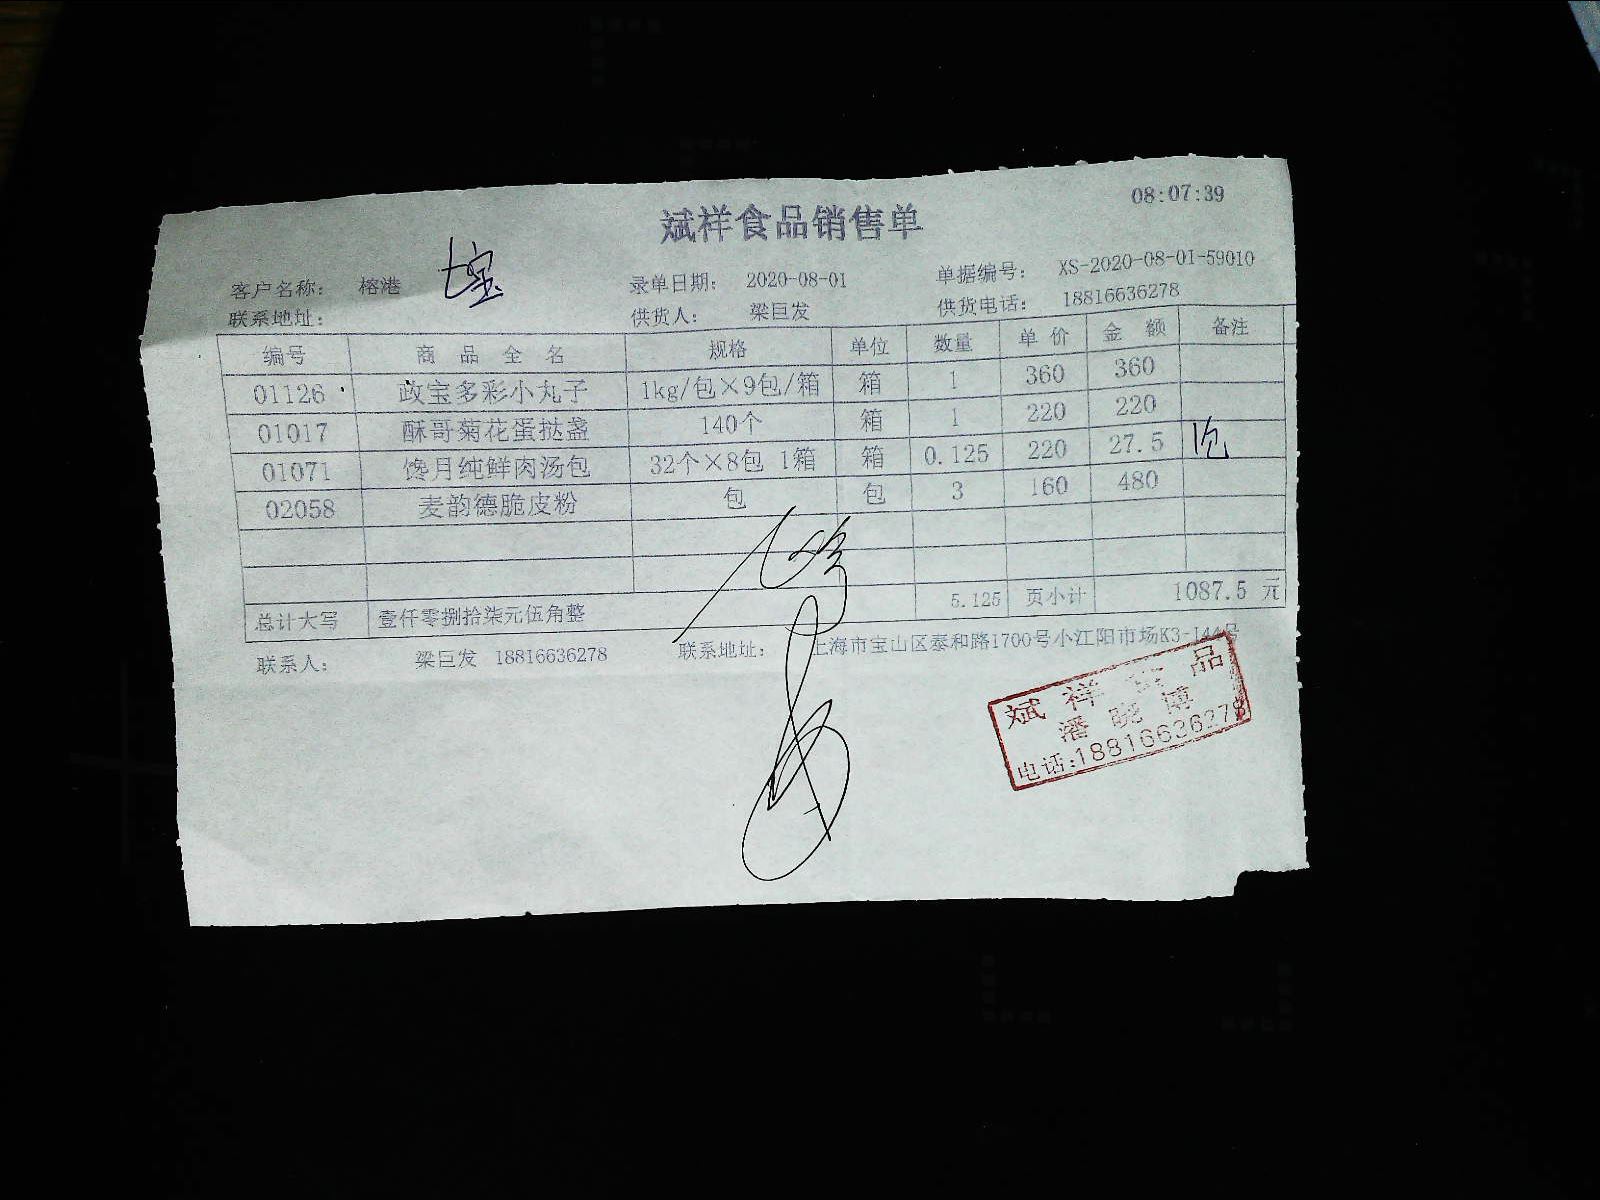 08:07:39
斌祥食品销售单
客户名称: 榕港 七宝 录单日期: 2020-08-01 单据编号: XS-2020-08-01-59010
联系地址: 供货人: 梁巨发 供货电话: 18816636278
编号 商 品 全 名 规格 单位 数量 单 价 金 额 备注
01126 政宝多彩小丸子 1kg/包×9包/箱 箱 1 360 360
01017 酥哥菊花蛋挞盏 140个 箱 1 220 220
01071 馋月纯鲜肉汤包 32个×8包 1箱 箱 0.125 220 27.5 1包
02058 麦韵德脆皮粉 包 包 3 160 480
总计大写 壹仟零捌拾柒元伍角整 5.125 页小计 1087.5 元
联系人: 梁巨发 18816636278 联系地址: 上海市宝山区泰和路1700号小江阳市场K3-144号
斌祥食品
潘晓博
电话:18816636278